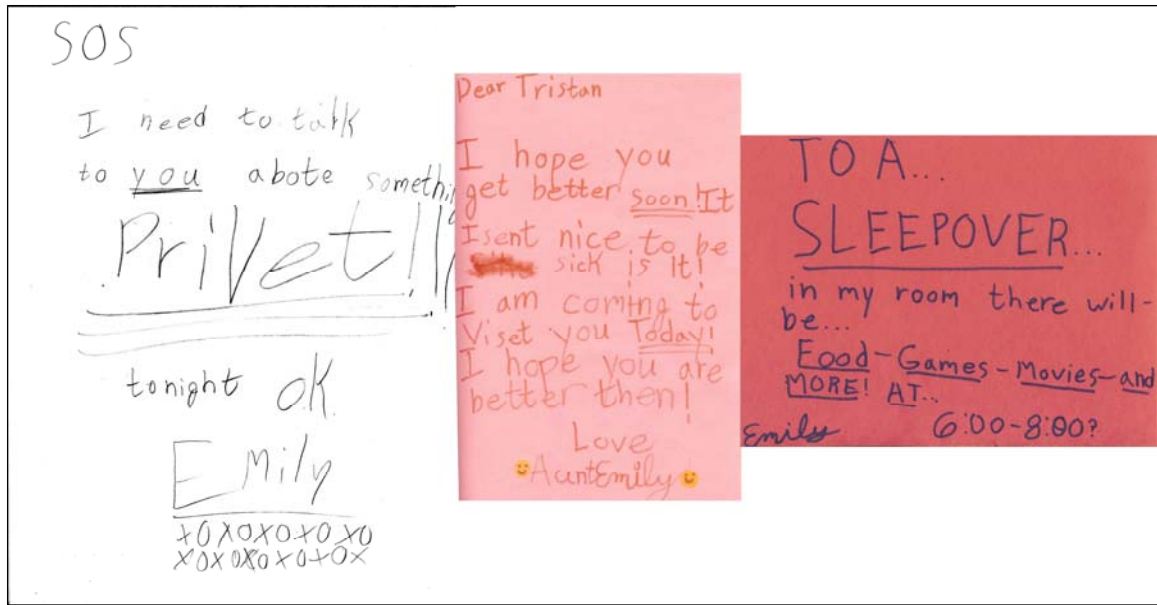 SOS
I need to talk
to you abote somethin
Privet!!
tonight O.K.
Emily
XOXOXOXOXO
XOXOXOXOXOX
Dear Tristan
I hope you
get better soon! It
Isent nice to be
sick is It!
I am coming to
Viset you Today!
I hope you are
better then!
Love
AuntEmily
TO A...
SLEEPOVER...
in my room there will-
be...
Food-Games-Movies-and
MORE! AT...
Emily 6:00-8:00?